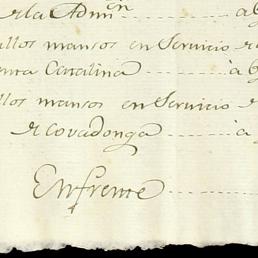 de la Admon ... a
allos mansos en Servicio de
anta Catalina ... a
llos mansos en Servicio de
de covadonga ... a
Enfrente ...